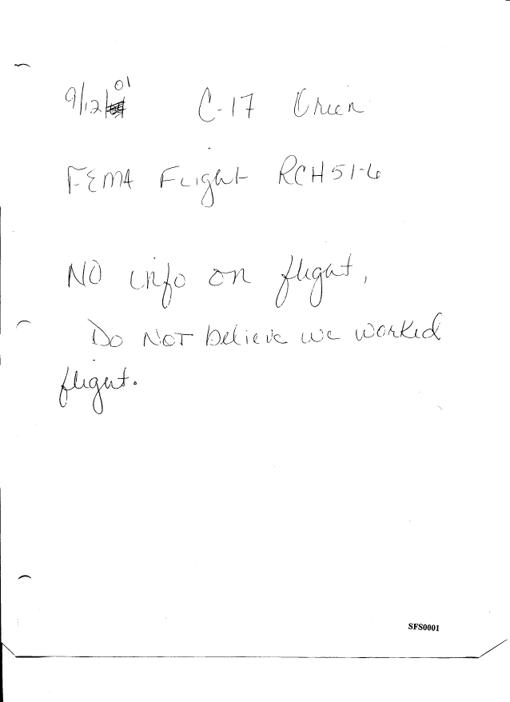 9/12/01 C-17
FEMA Flight RCH51-6
NO info on flight,
Do NOT believe we worked
flight.
SFS0001